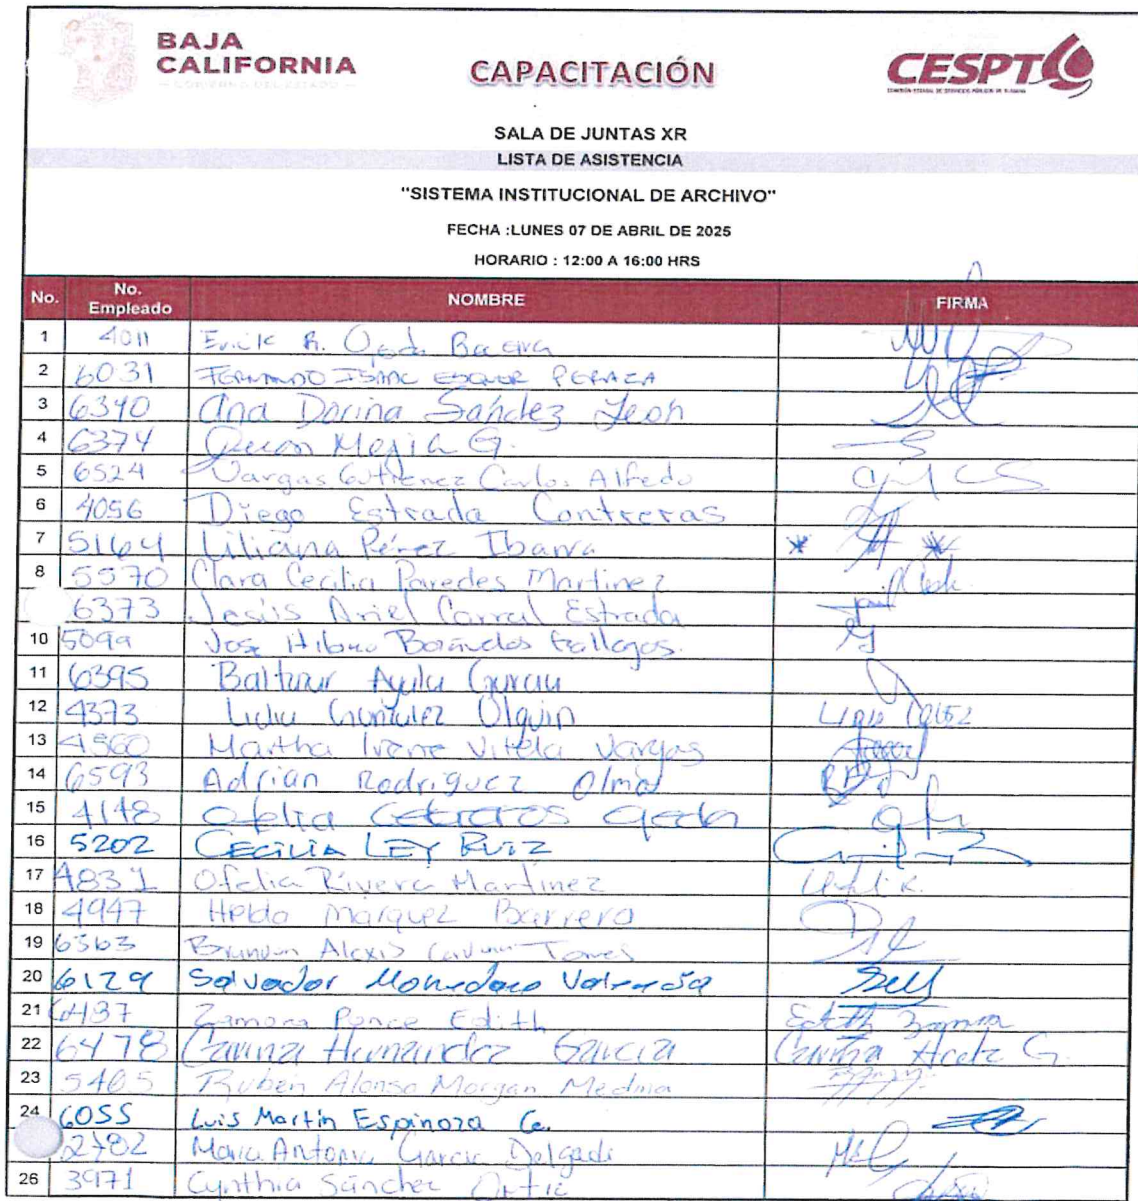 BAJA
CALIFORNIA
GOBIERNO DEL ESTADO
CAPACITACIÓN
CESPT
COMISIÓN ESTATAL DE SERVICIOS PÚBLICOS DE TIJUANA
SALA DE JUNTAS XR
LISTA DE ASISTENCIA
"SISTEMA INSTITUCIONAL DE ARCHIVO"
FECHA :LUNES 07 DE ABRIL DE 2025
HORARIO : 12:00 A 16:00 HRS
No. No. Empleado NOMBRE FIRMA
1 4011 Erick R. Ojeda
2 6031 FERNANDO ISAAC ESQUER PERAZA
3 6340 Ana Dorina Sández León
4 6374 Mejia G.
5 6524 Vargas Gutierrez Carlos Alfredo
6 4056 Diego Estrada Contreras
7 5164 Liliana Pérez Ibarra
8 5570 Clara Cecilia Paredes Martinez
6373 Jesús Ariel Corral Estrada
10 5099 Jose Gallegos
11 6395 Baltazar Ayala
12 4373 Lidia González Olguin
13 4560 Martha Irene Vitela Vargas
14 6593 Adrian Rodriguez Olmo
15 4148 Ofelia Ojeda
16 5202 CECILIA LEY RUIZ
17 4831 Ofelia Rivera Martinez
18 4947 Helda Marquez Barrera
19 6363 Brandon Alexis Torres
20 6129 Salvador Valencia
21 6437 Zamora Ponce Edith Edith Zamora
22 6478 Carinza Hernandez Garcia
23 5465 Ruben Alonso Morgan Medina
24 6055 Luis Martin Espinoza
2782 Maria Antonia Garcia Delgado
26 3971 Cynthia Sánchez Ortiz